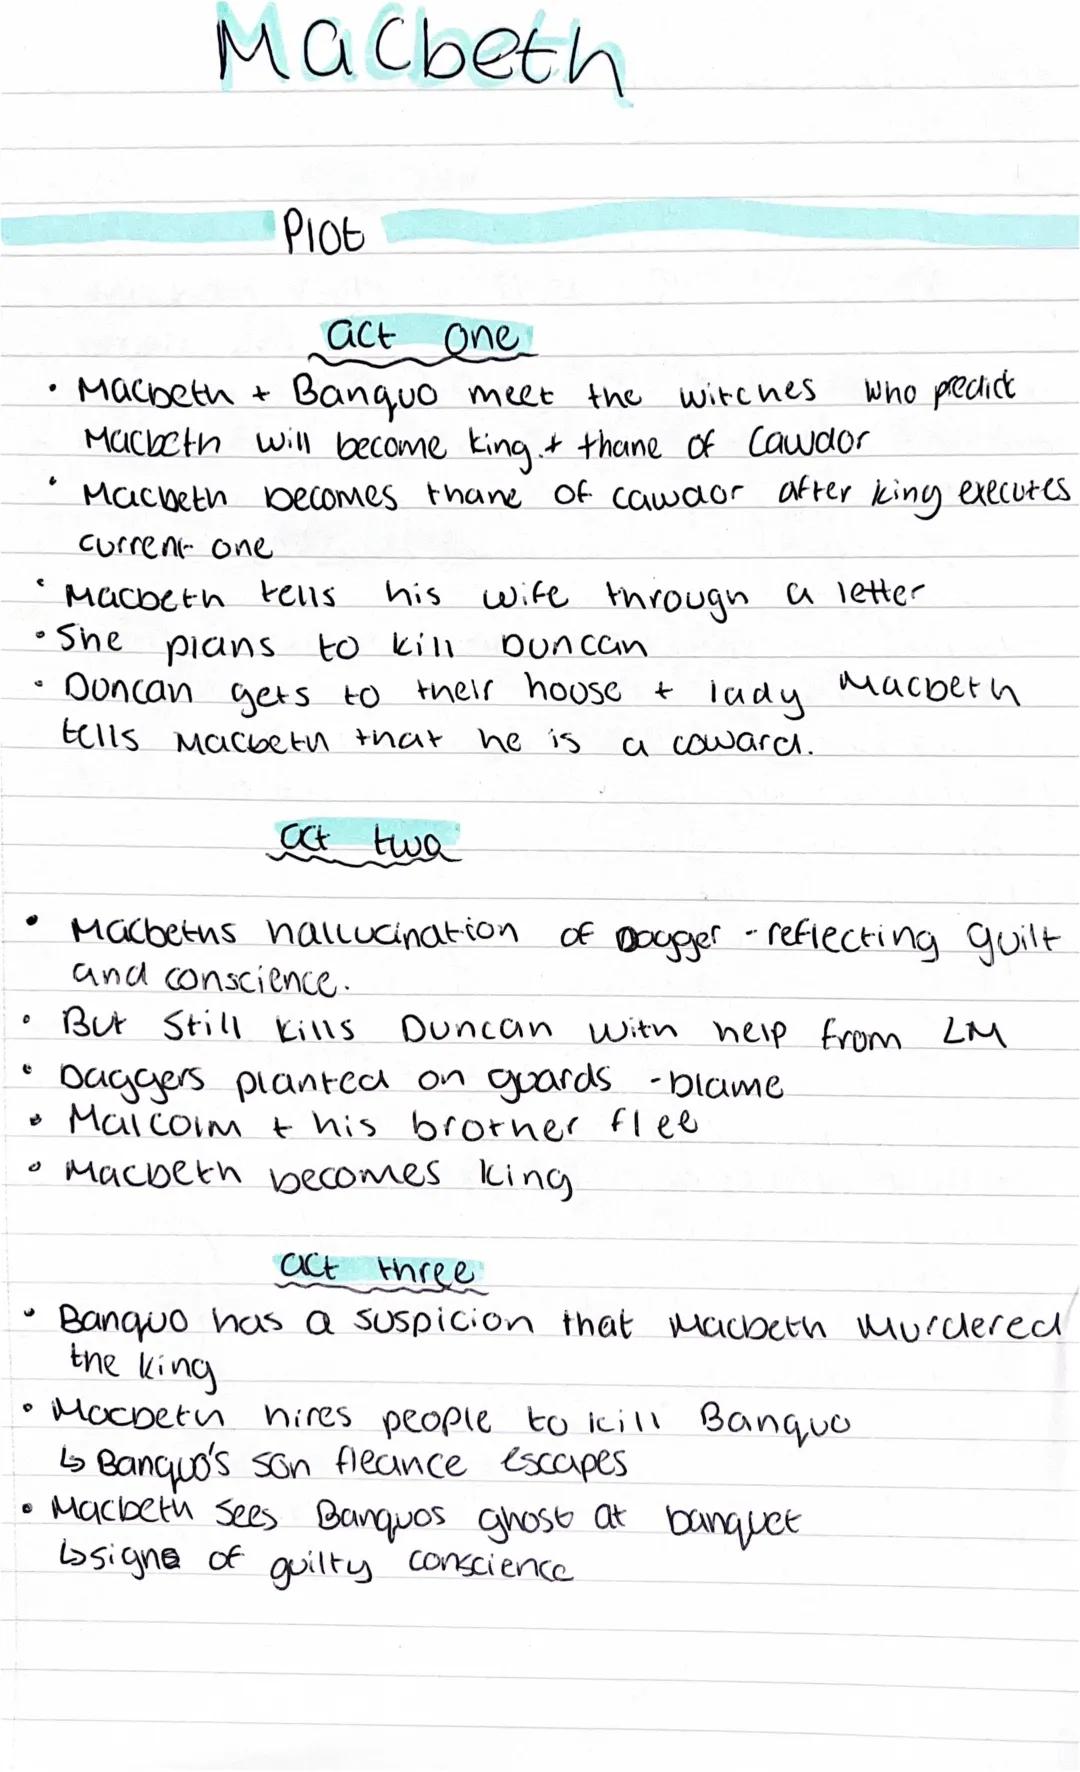 Macbeth
Plot
act one
• Macbeth + Banquo meet the witches who predict
Macbeth will become king + thane of Cawdor
• Macbeth becomes thane of cawdor after king executes
current one
• Macbeth tells his wife through a letter
• She plans to kill Duncan
• Duncan gets to their house + lady Macbeth
tells Macbeth that he is a coward.
act two
• Macbeths hallucination of Dagger - reflecting guilt
and conscience.
• But still kills Duncan with help from LM
• Daggers planted on guards - blame
• Malcolm + his brother flee
• Macbeth becomes king
act three
• Banquo has a suspicion that Macbeth murdered
the king
• Macbeth hires people to kill Banquo
↳ Banquo's son fleance escapes
• Macbeth sees Banquos ghost at banquet
↳ signs of guilty conscience